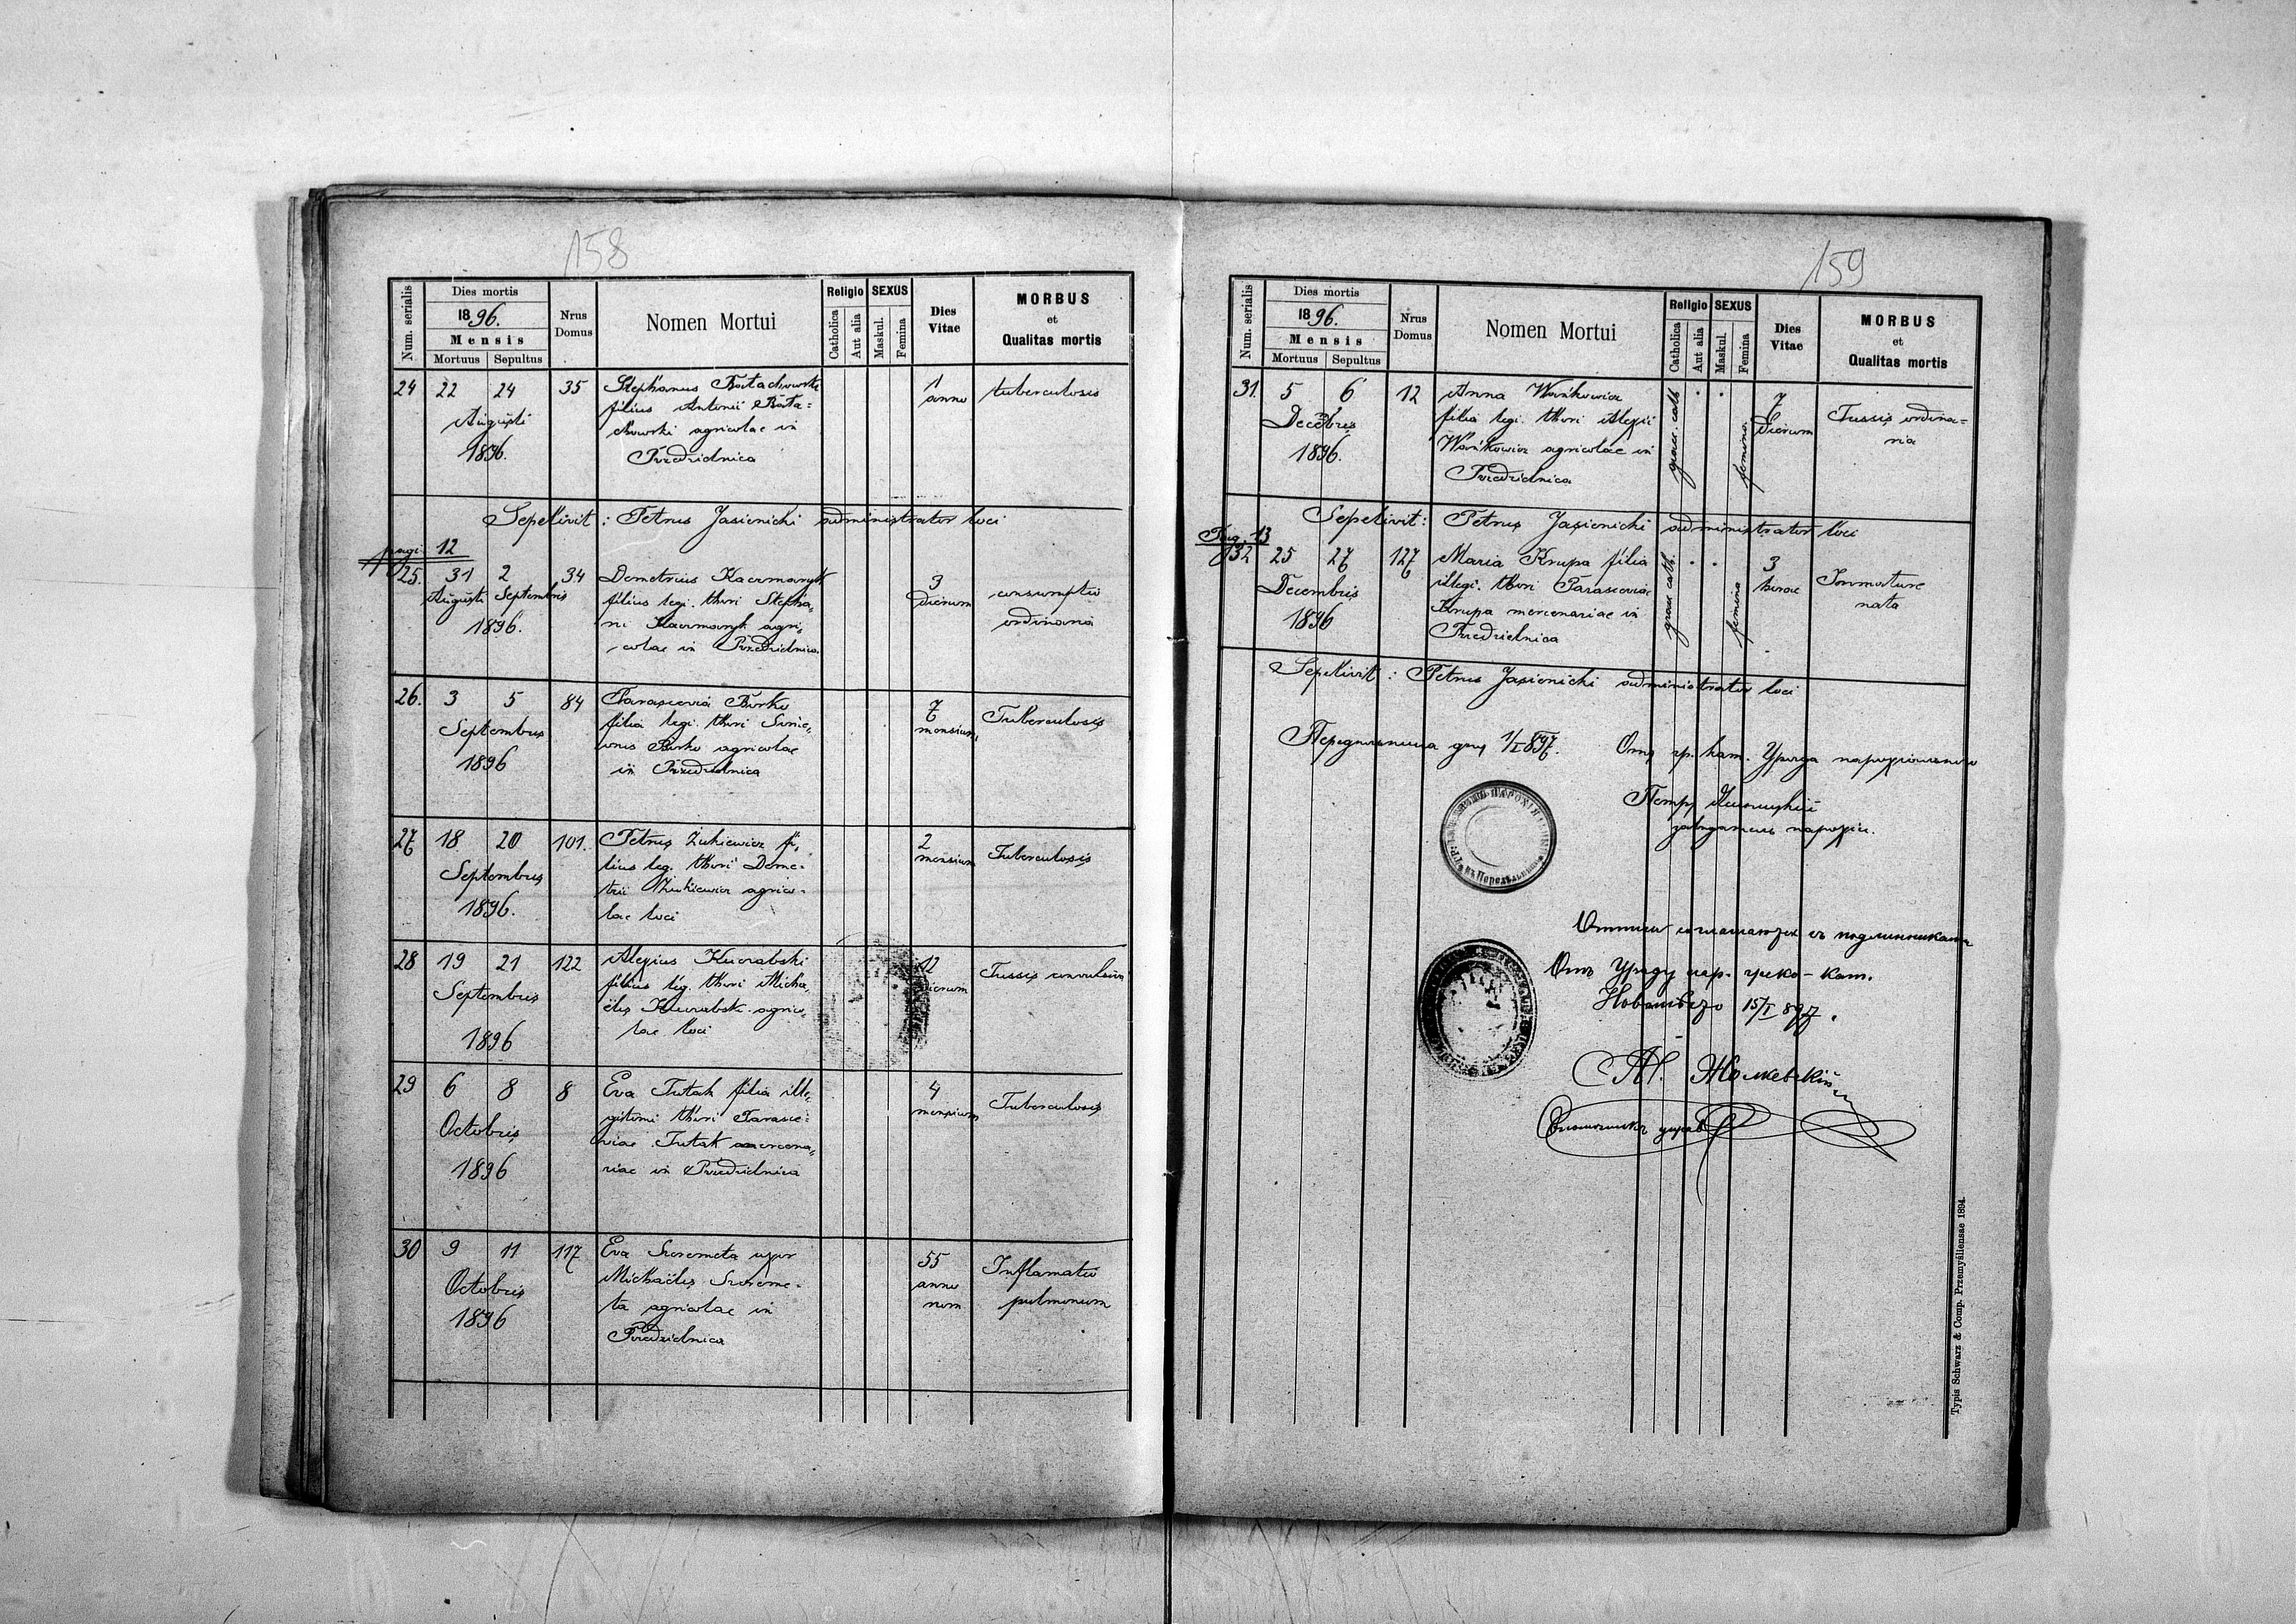 158
Num. serialis
Dies mortis
1896.
Mensis
Mortuus Sepultus
Nrus Domus
Nomen Mortui
Religio
Catholica
Aut alia
SEXUS
Maskul.
Femina
Dies Vitae
MORBUS
et
Qualitas mortis
24 22 24 35 Stephanus 1 tuberculosis
Augusti filius Antonii anno
1896. agricolae in
Przedzielnica
Sepelivit: Petrus Jasienicki administrator loci
pagi. 12
25. 31 2 34 Demetrius Kaczmaryk 3 consumptio
Augusti Septembris filius legi. thori Stepha, dierum ordinaria
1896. ni Kaczmaryk agri,
colae in Przedzielnica
26. 3 5 84 Parascevia Burko 7 Tuberculosis
Septembris filia legi. thori Sime, mensium
1896 onis Burko agricolae
in Przedzielnica
27 18 20 101. Petrus Żukiewicz fi, 2 Tuberculosis
Septembris lius leg. thori Deme- mensium
1896. trii Żukiewicz agrico-
lae loci
28 19 21 122 Alexius 12 Tussis convulsiva
Septembris filius leg. thori Micha, dierum
elis agrico,
1896 lae loci
29 6 8 8 Eva Tutak filia ille, 4 Tuberculosis
Octobris gitimi thori Parasce- mensium
viae Tutak mercena,
1896 riae in Przedzielnica
30 9 11 117 Eva Szeremeta uxor 55 Inflamatio
Octobris Michaelis Szereme- anno pulmonum
1896 ta agricolae in rum
Przedzielnica
159
Num. serialis
Dies mortis
1896.
Mensis
Mortuus Sepultus
Nrus Domus
Nomen Mortui
Religio
Catholica
Aut alia
SEXUS
Maskul.
Femina
Dies Vitae
MORBUS
et
Qualitas mortis
31. 5 6 12 Anna Wańkowicz graec. cath femina 7 Tussis ordina=
Decebris filia legi. thori Alexii dierum ria
1896. Wańkowicz agricolae in
Przedzielnica
Sepelivit: Petrus Jasienicki administrator loci
Pag. 13
32 25 27 127 Maria Krupa filia graec cath. femina 3 Immature
Decembris illegi. thori Parasceviae horae nata
1896 Krupa mercenariae in
Przedzielnica
Sepelivit: Petrus Jasienicki administrator loci
1/I 897. Отъ гр. кат. Уряда
Петръ
завѣдатель парохіи.
съ
Отъ Уряду пар. греко-кат.
15/I 897.
Typis Schwarz & Comp. Przemyśliensae 1894.